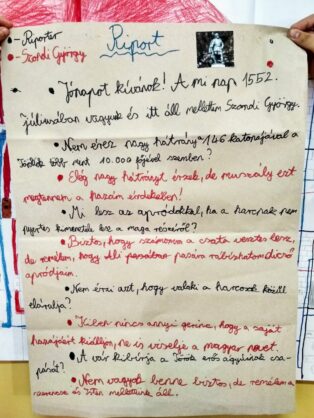 • - Riporter
• - Szondi György
Riport
• Jónapot kívánok! A mi nap 1552.
júliusában vagyunk és itt áll mellettem Szondi György.
• Nem érez nagy hátrányt 146 katonájával a
Törökök több mint 10.000 főjével szemben?
• Elég nagy hátrányt érzek, de muszály ezt
megtennem a hazám érdekében!
• Mi lesz az apródokkal, ha a harcnak nem
nyertes kimenetele lesz a maga részéről?
• Biztos, hogy számomra a csata vesztes lesz,
de remélem, hogy Ali pasa
apródjaim.
• Nem érzi azt, hogy valaki a harcosok közül
elárulja?
• Kinek nincs annyi gerince, hogy a saját
hazájáért kiálljon, ne is viselje a magyar nevet.
• A vár kibírja a Török erős ágyúinak csa-
pását?
• Nem vagyok benne biztos, de remélem a
szerencse és Isten mellettünk áll.